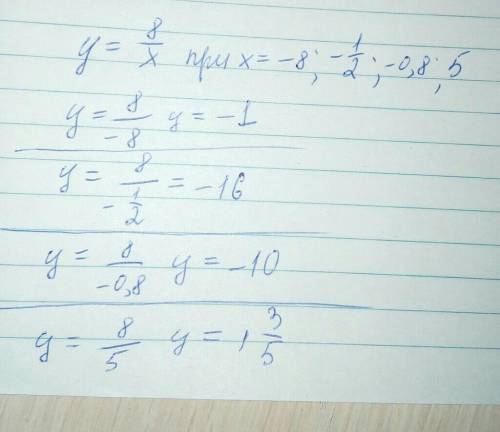 y = 8/x при x = -8; -1/2; -0,8; 5
y = 8/-8 y = -1
y = 8/-1/2 = -16
y = 8/-0,8 y = -10
y = 8/5 y = 1 3/5